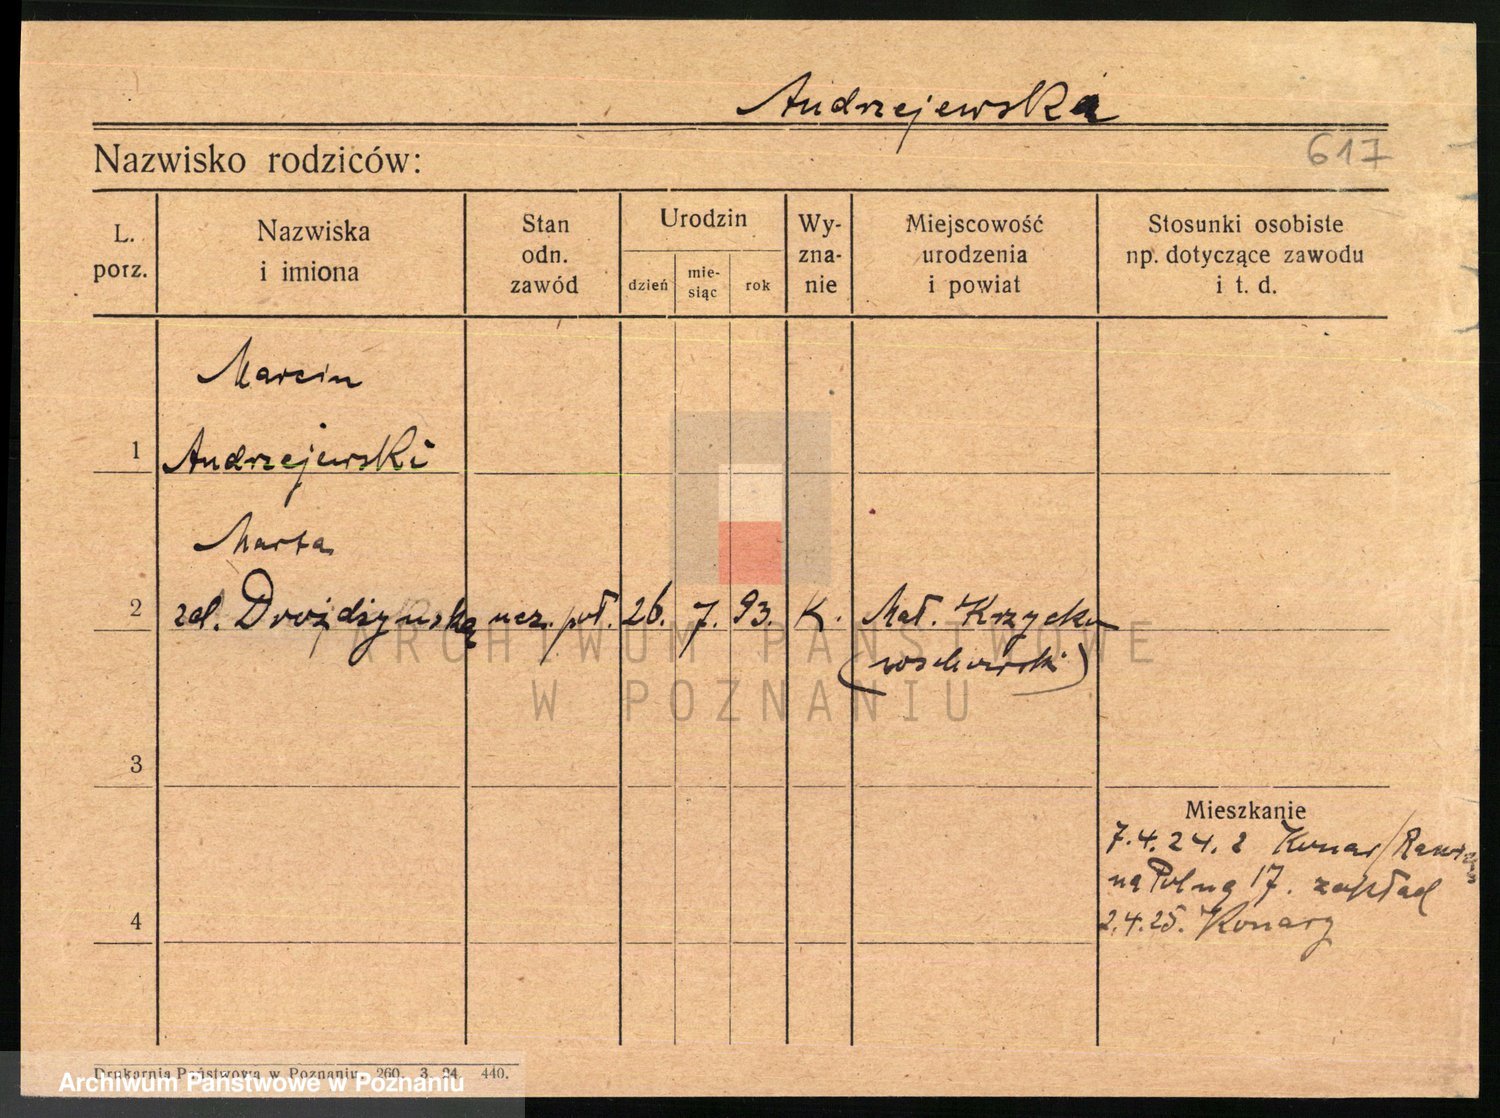 Andrzejewska
Nazwisko rodziców:
617
L. porz.
Nazwiska i imiona
Stan odn. zawód
Urodzin
dzień
mie-siąc
rok
Wy-zna-nie
Miejscowość urodzenia i powiat
Stosunki osobiste np. dotyczące zawodu i t. d.
Marcin
1 Andrzejewski
Marta
2 zd. Drożdżyńska ucz. poł. 26. 7. 93. K. Mał. Krzycko
3
Mieszkanie
7.4.24. z Konar/Rawicz
na Polną 17. zakład
4 2.4.25. Konary
ARCHIWUM PAŃSTWOWE
W POZNANIU
Drukarnia Państwowa w Poznaniu. 260. 3. 24. 440.
Archiwum Państwowe w Poznaniu